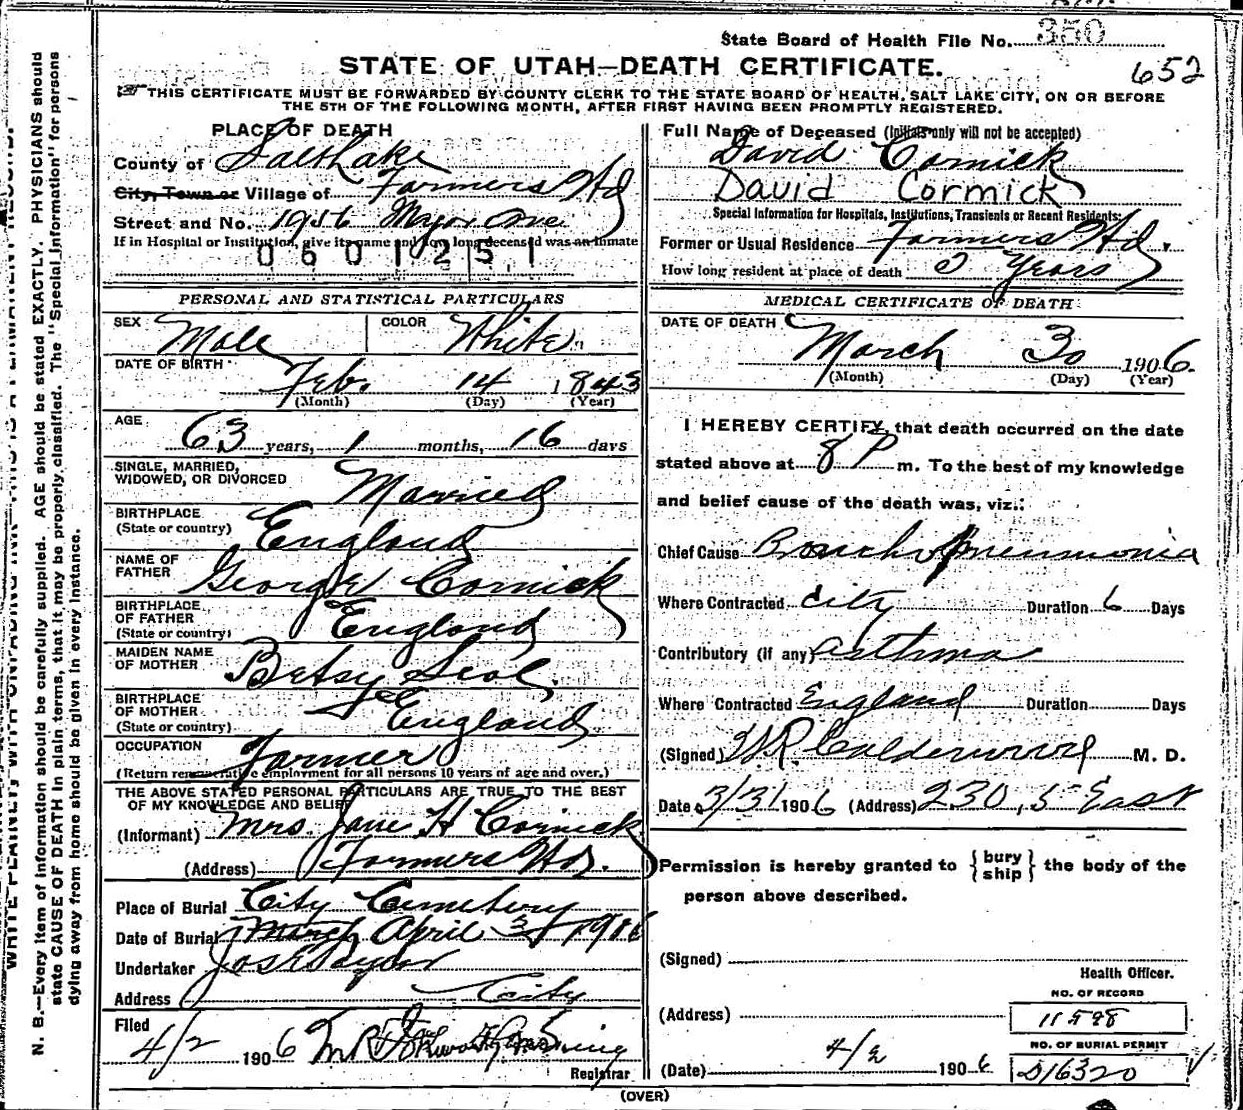 State Board of Health File No. 350
STATE OF UTAH—DEATH CERTIFICATE.
652
THIS CERTIFICATE MUST BE FORWARDED BY COUNTY CLERK TO THE STATE BOARD OF HEALTH, SALT LAKE CITY, ON OR BEFORE
THE 5TH OF THE FOLLOWING MONTH, AFTER FIRST HAVING BEEN PROMPTLY REGISTERED.
PLACE OF DEATH
County of Salt Lake
City, Town or Village of Farmers Wd
Street and No. 1956 Major Ave
If in Hospital or Institution, give its name and how long deceased was an inmate
0601251
PERSONAL AND STATISTICAL PARTICULARS
SEX Male COLOR White
DATE OF BIRTH Feb. 14 1843
(Month) (Day) (Year)
AGE 63 years, 1 months, 16 days
SINGLE, MARRIED,
WIDOWED, OR DIVORCED Married
BIRTHPLACE
(State or country) England
NAME OF
FATHER George Cormick
BIRTHPLACE
OF FATHER
(State or country) England
MAIDEN NAME
OF MOTHER Betsy
BIRTHPLACE
OF MOTHER
(State or country) England
OCCUPATION Farmer
(Return remunerative employment for all persons 10 years of age and over.)
THE ABOVE STATED PERSONAL PARTICULARS ARE TRUE TO THE BEST
OF MY KNOWLEDGE AND BELIEF
(Informant) Mrs. Jane H Cormick
(Address) Farmers Wd.
Place of Burial City Cemetery
Date of Burial March April 3 1906
Undertaker Jos E Taylor
Address City
Filed
4/2 1906
Registrar
Full Name of Deceased (Initials only will not be accepted)
David Cormick
David Cormick
Special Information for Hospitals, Institutions, Transients or Recent Residents:
Former or Usual Residence Farmers Wd.
How long resident at place of death Years
MEDICAL CERTIFICATE OF DEATH
DATE OF DEATH
March 30 1906.
(Month) (Day) (Year)
I HEREBY CERTIFY, that death occurred on the date
stated above at 8 P m. To the best of my knowledge
and belief cause of the death was, viz.:
Chief Cause Broncho Pneumonia
Where Contracted City Duration 6 Days
Contributory (if any) Asthma
Where Contracted England Duration Days
(Signed) W.R. Calderwood M. D.
Date 3/31 1906 (Address) 230, 5 East
Permission is hereby granted to {bury ship} the body of the
person above described.
(Signed)
Health Officer.
NO. OF RECORD
(Address) 11598
NO. OF BURIAL PERMIT
(Date) 4/2 1906 D16320
(OVER)
N. B.—Every item of information should be carefully supplied. AGE should be stated EXACTLY. PHYSICIANS should
state CAUSE OF DEATH in plain terms, that it may be properly classified. The "Special Information" for persons
dying away from home should be given in every instance.